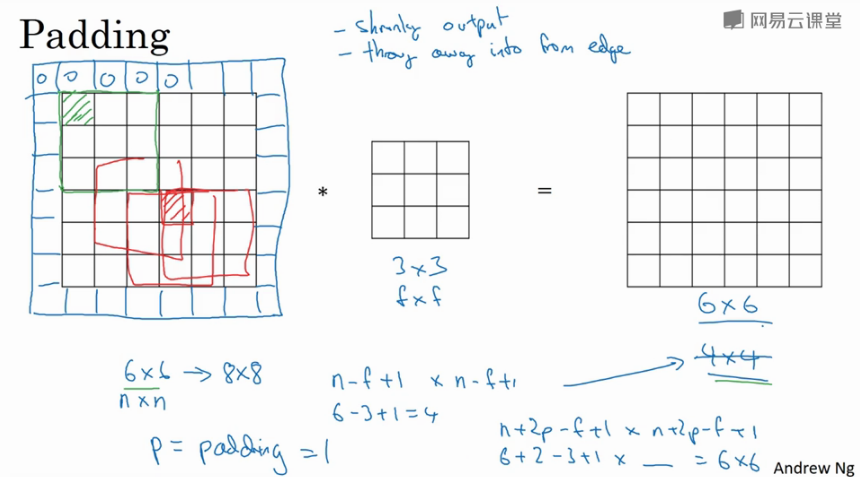 Padding
- shrinky output
- throw away info from edge
网易云课堂
0 0 0 0 0
*
=
3 x 3
f x f
6 x 6
4 x 4
6 x 6 → 8 x 8
n x n
n-f+1 x n-f+1
6-3+1=4
p = padding = 1
n+2p-f+1 x n+2p-f+1
6+2-3+1 x __ = 6x6
Andrew Ng